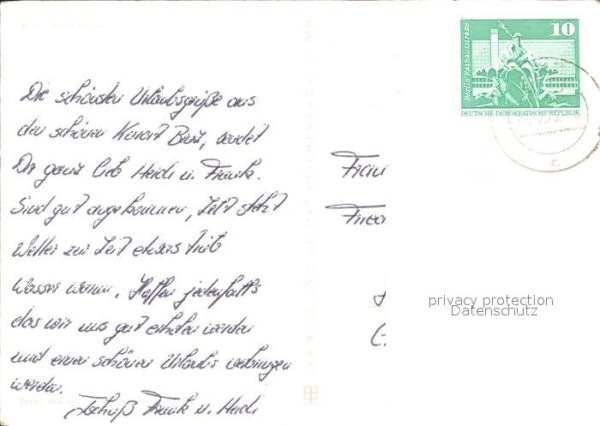 Die schönsten Urlaubsgrüße aus
den schönen Kurort Binz, sendet
Dir ganz lieb Heidi u. Frank.
Sind gut angekommen, Zelt steht
Wetter zur Zeit etwas trüb
Wasser warm. Hoffen jedenfalls
das wir uns gut erholen werden
und einen schönen Urlaub verbringen
werden.
Tschüß Frank u. Heidi
10
Berlin, Rathausstraße
DEUTSCHE DEMOKRATISCHE REPUBLIK
privacy protection
Datenschutz